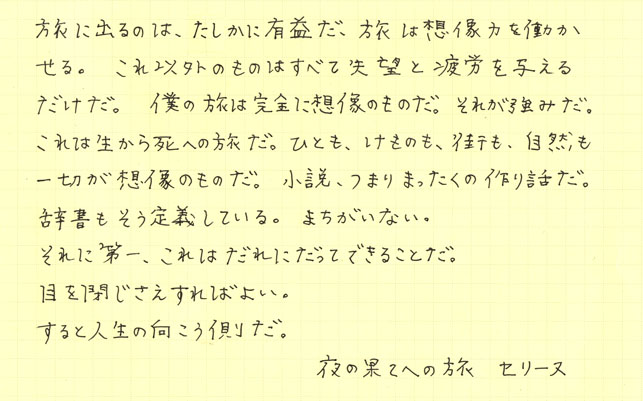 旅に出るのは、たしかに有益だ、旅は想像力を働か
せる。 これ以外のものはすべて失望と疲労を与える
だけだ。 僕の旅は完全に想像のものだ。それが強みだ。
これは生から死への旅だ。ひとも、けものも、街も、自然も
一切が想像のものだ。 小説、つまりまったくの作り話だ。
辞書もそう定義している。 まちがいない。
それに第一、これはだれにだってできることだ。
目を閉じさえすればよい。
すると人生の向こう側だ。
夜の果てへの旅 セリーヌ